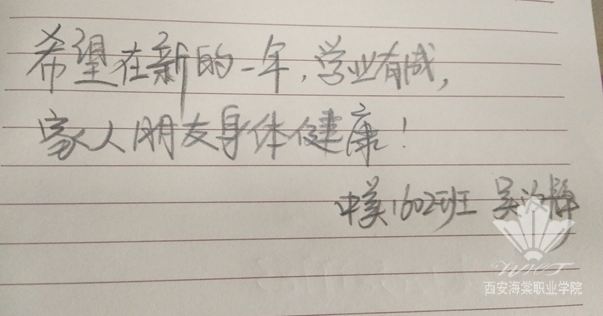 希望在新的一年，学业有成，
家人朋友身体健康！
中美1602班 吴
WHCT
西安海棠职业学院